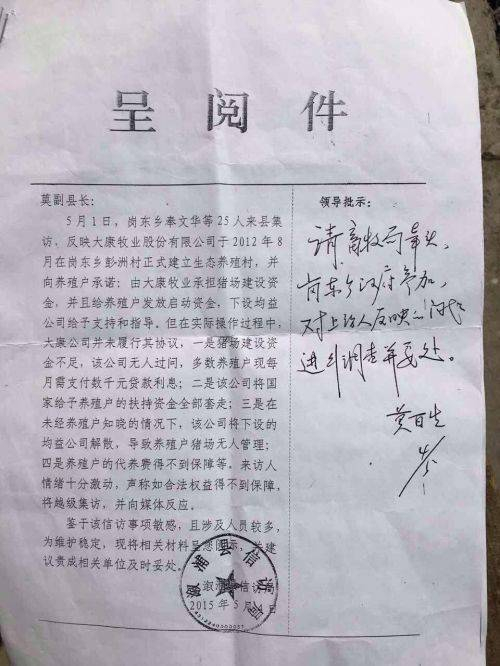 呈阅件
莫副县长：
5月1日，岗东乡奉文华等25人来县集
访，反映大康牧业股份有限公司于2012年8
月在岗东乡彭洲村正式建立生态养殖村，并
向养殖户承诺：由大康牧业承担猪场建设资
金，并且给养殖户发放启动资金、下设均益
公司给于支持和指导。但在实际操作过程中，
大康公司并未履行其协议，一是猪场建设资
金不足，该公司无人过问，多数养殖户现每
月需支付数千元贷款利息；二是该公司将国
家给予养殖户的扶持资金全部套走；三是在
未经养殖户知晓的情况下，该公司将下设的
均益公司解散，导致养殖户猪场无人管理；
四是养殖户的代养费得不到保障等。来访人
情绪十分激动，声称如合法权益得不到保障，
将越级集访，并向媒体反应。
鉴于该信访事项敏感，且涉及人员较多，
为维护稳定，现将相关材料呈您阅示，并建
议责成相关单位及时妥处。
溆浦县信访局
2015年5月 日
领导批示：
请畜牧局牵头，
岗东乡政府参加，
对上访人反映的问题
进行调查并妥处。
莫百生
溆浦县信访局